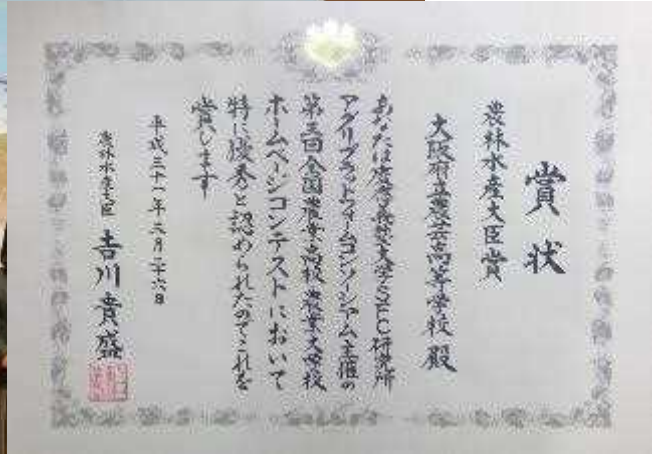 賞状
農林水産大臣賞
大阪府立農芸高等学校 殿
あなたは慶應義塾大学SFC研究所
アグリプラットフォームコンソーシアム主催の
第三回全国農業高校・農業大学校
ホームページコンテストにおいて
特に優秀と認められたのでこれを
賞します
平成三十一年三月二十六日
農林水産大臣 吉川貴盛